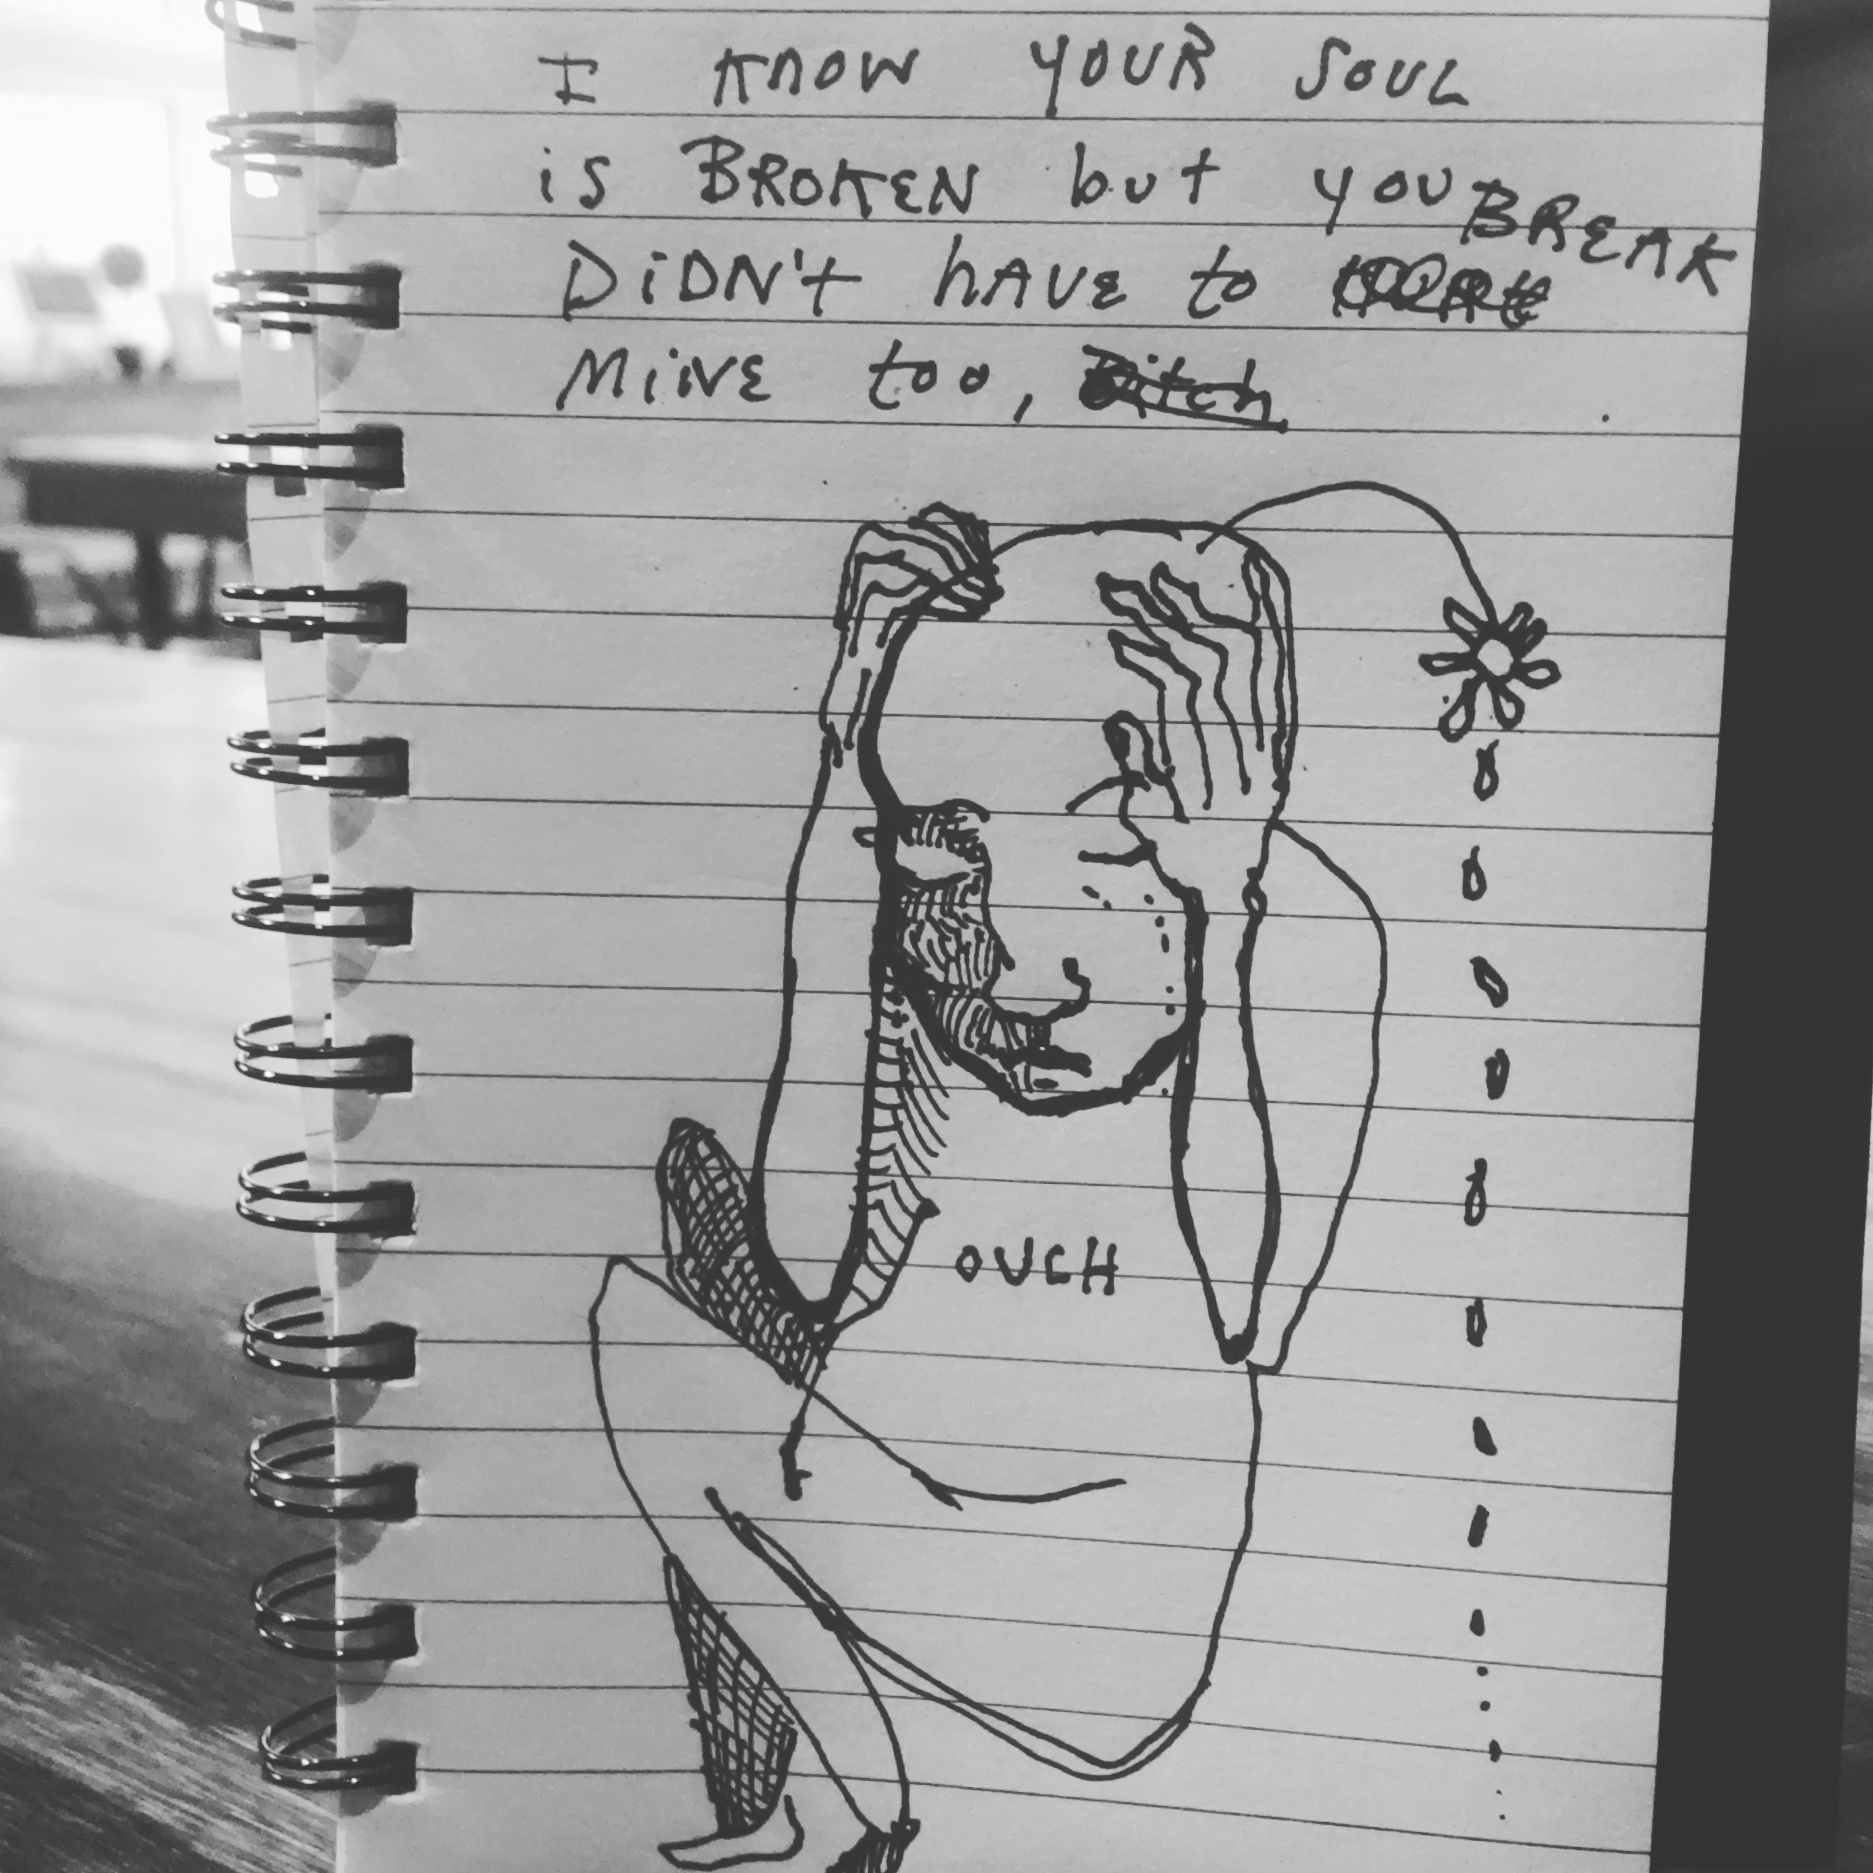 I KNOW YOUR SOUL
is BROKEN but you BREAK
DiDN't HAVE to
MiNE too, Bitch
OUCH